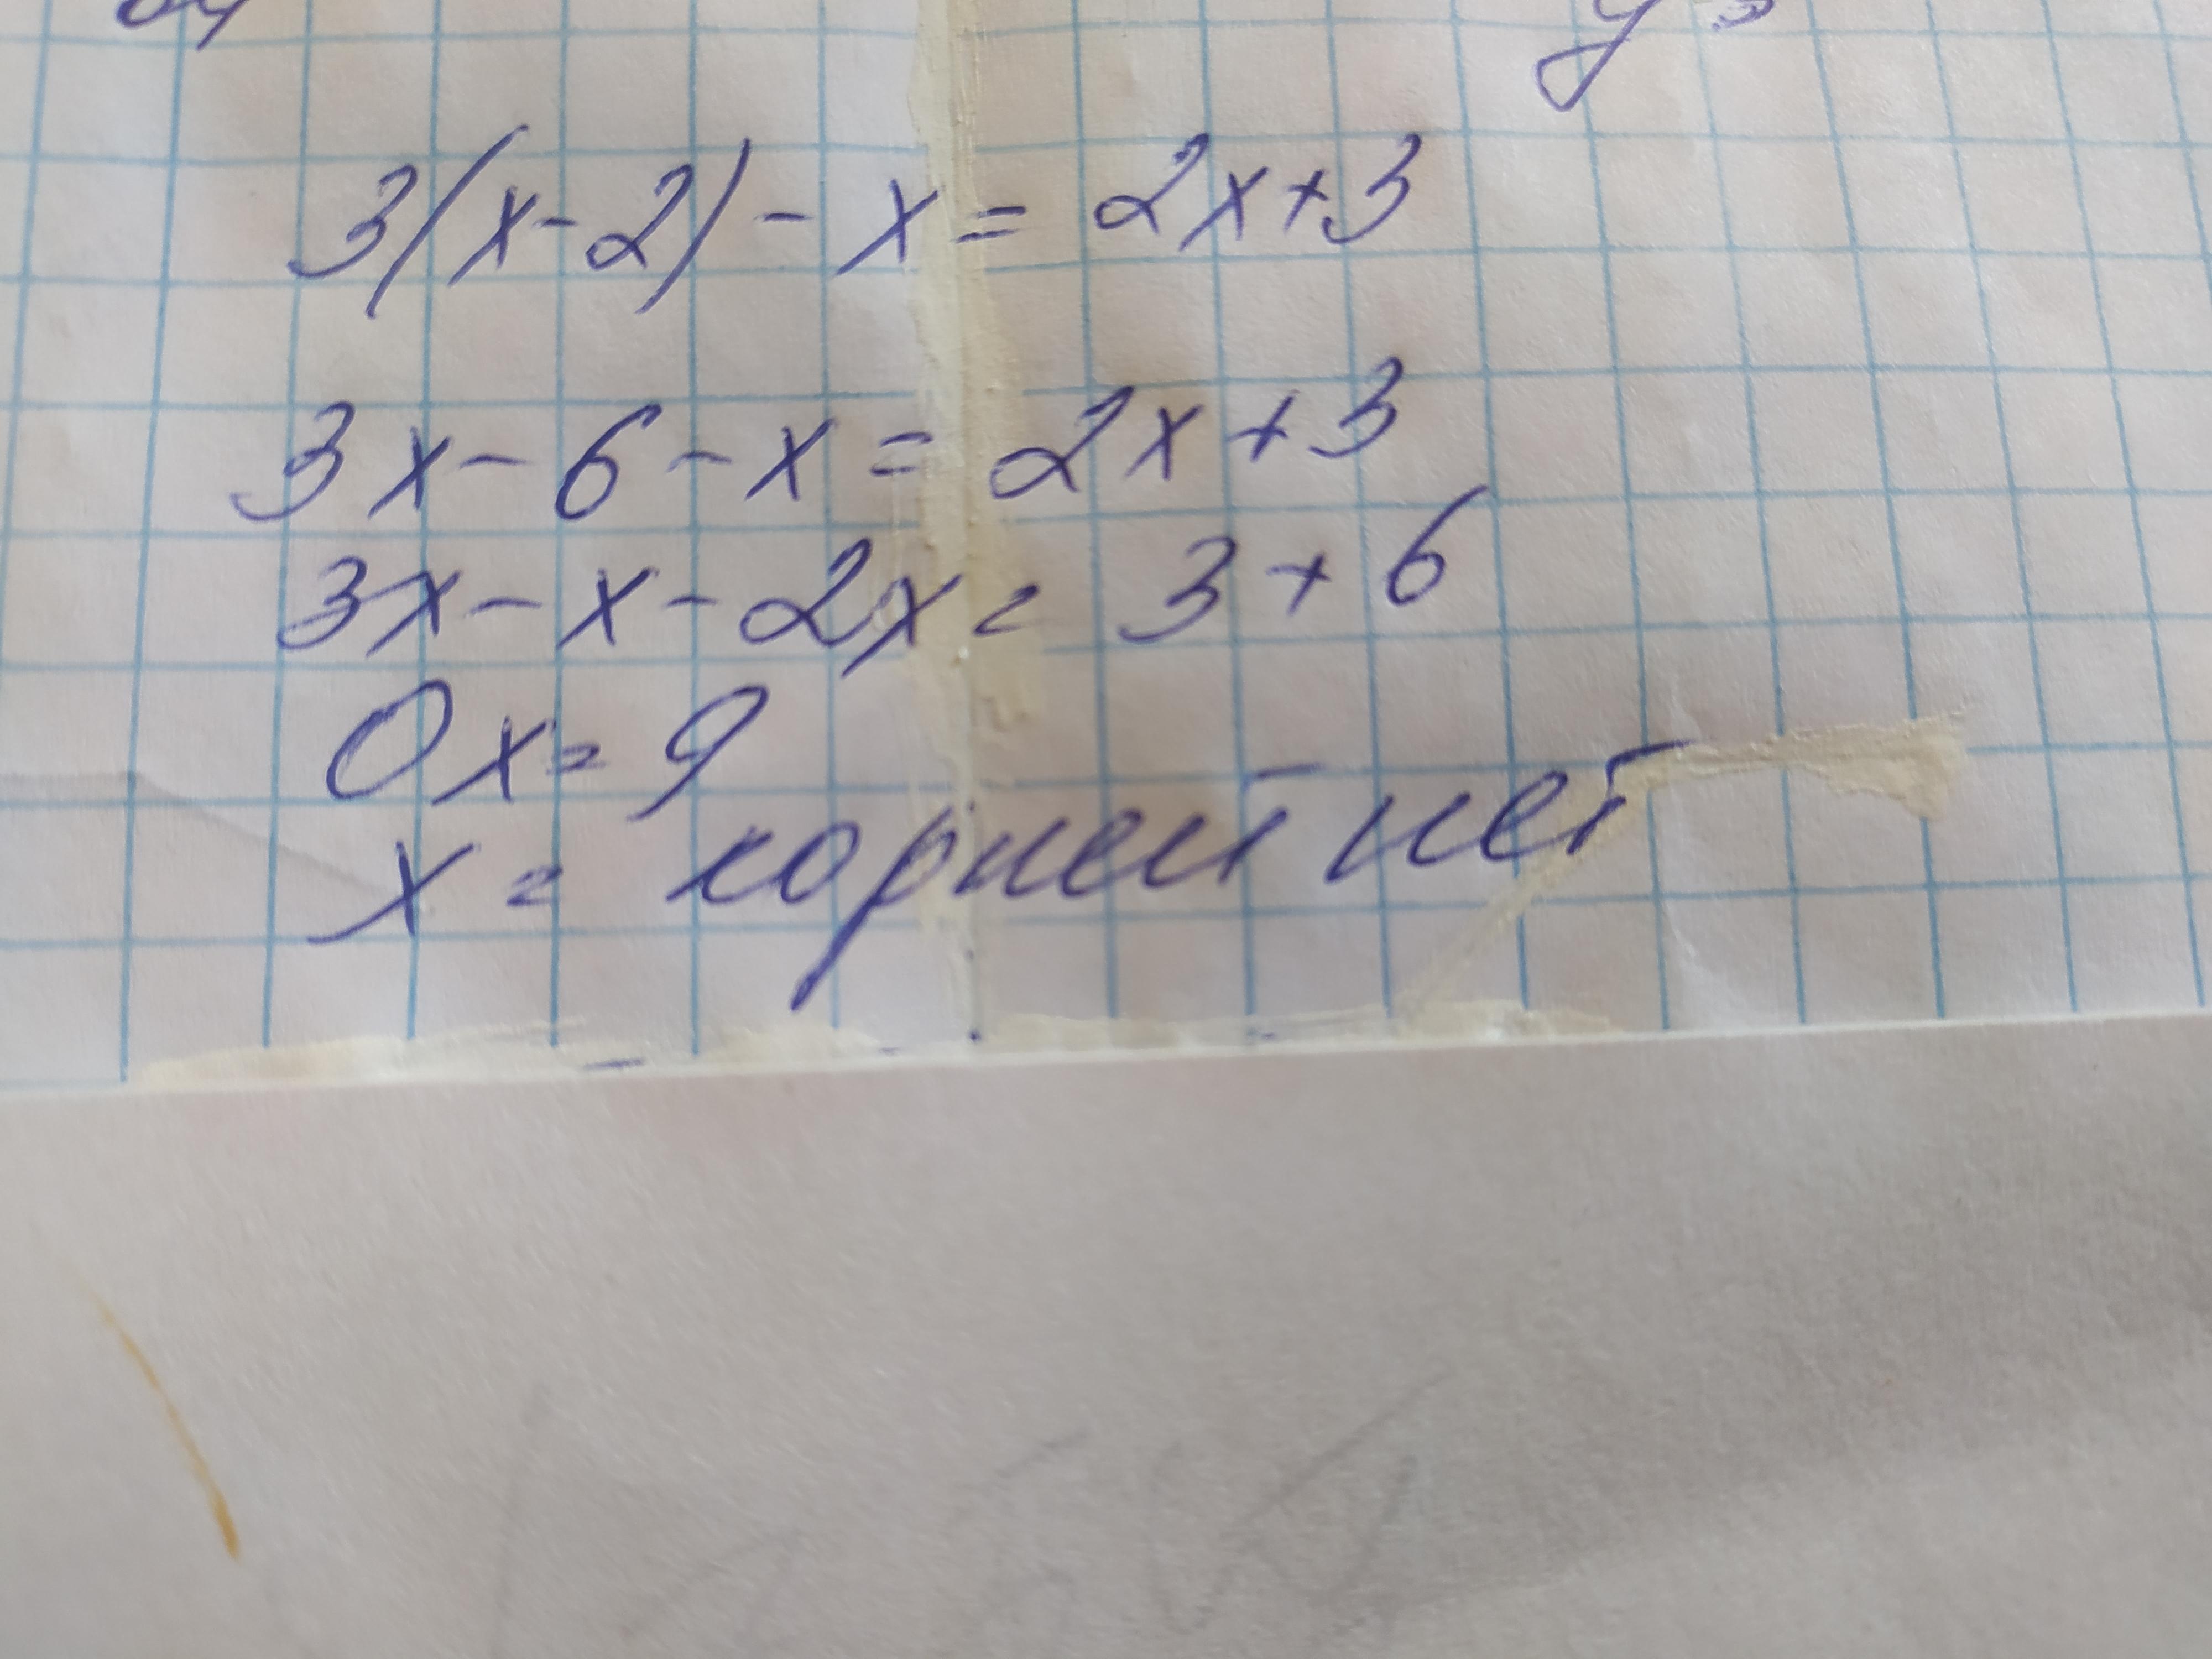 3(x-2)-x=2x+3
3x-6-x=2x+3
3x-x-2x=3+6
0x=9
x=корней нет